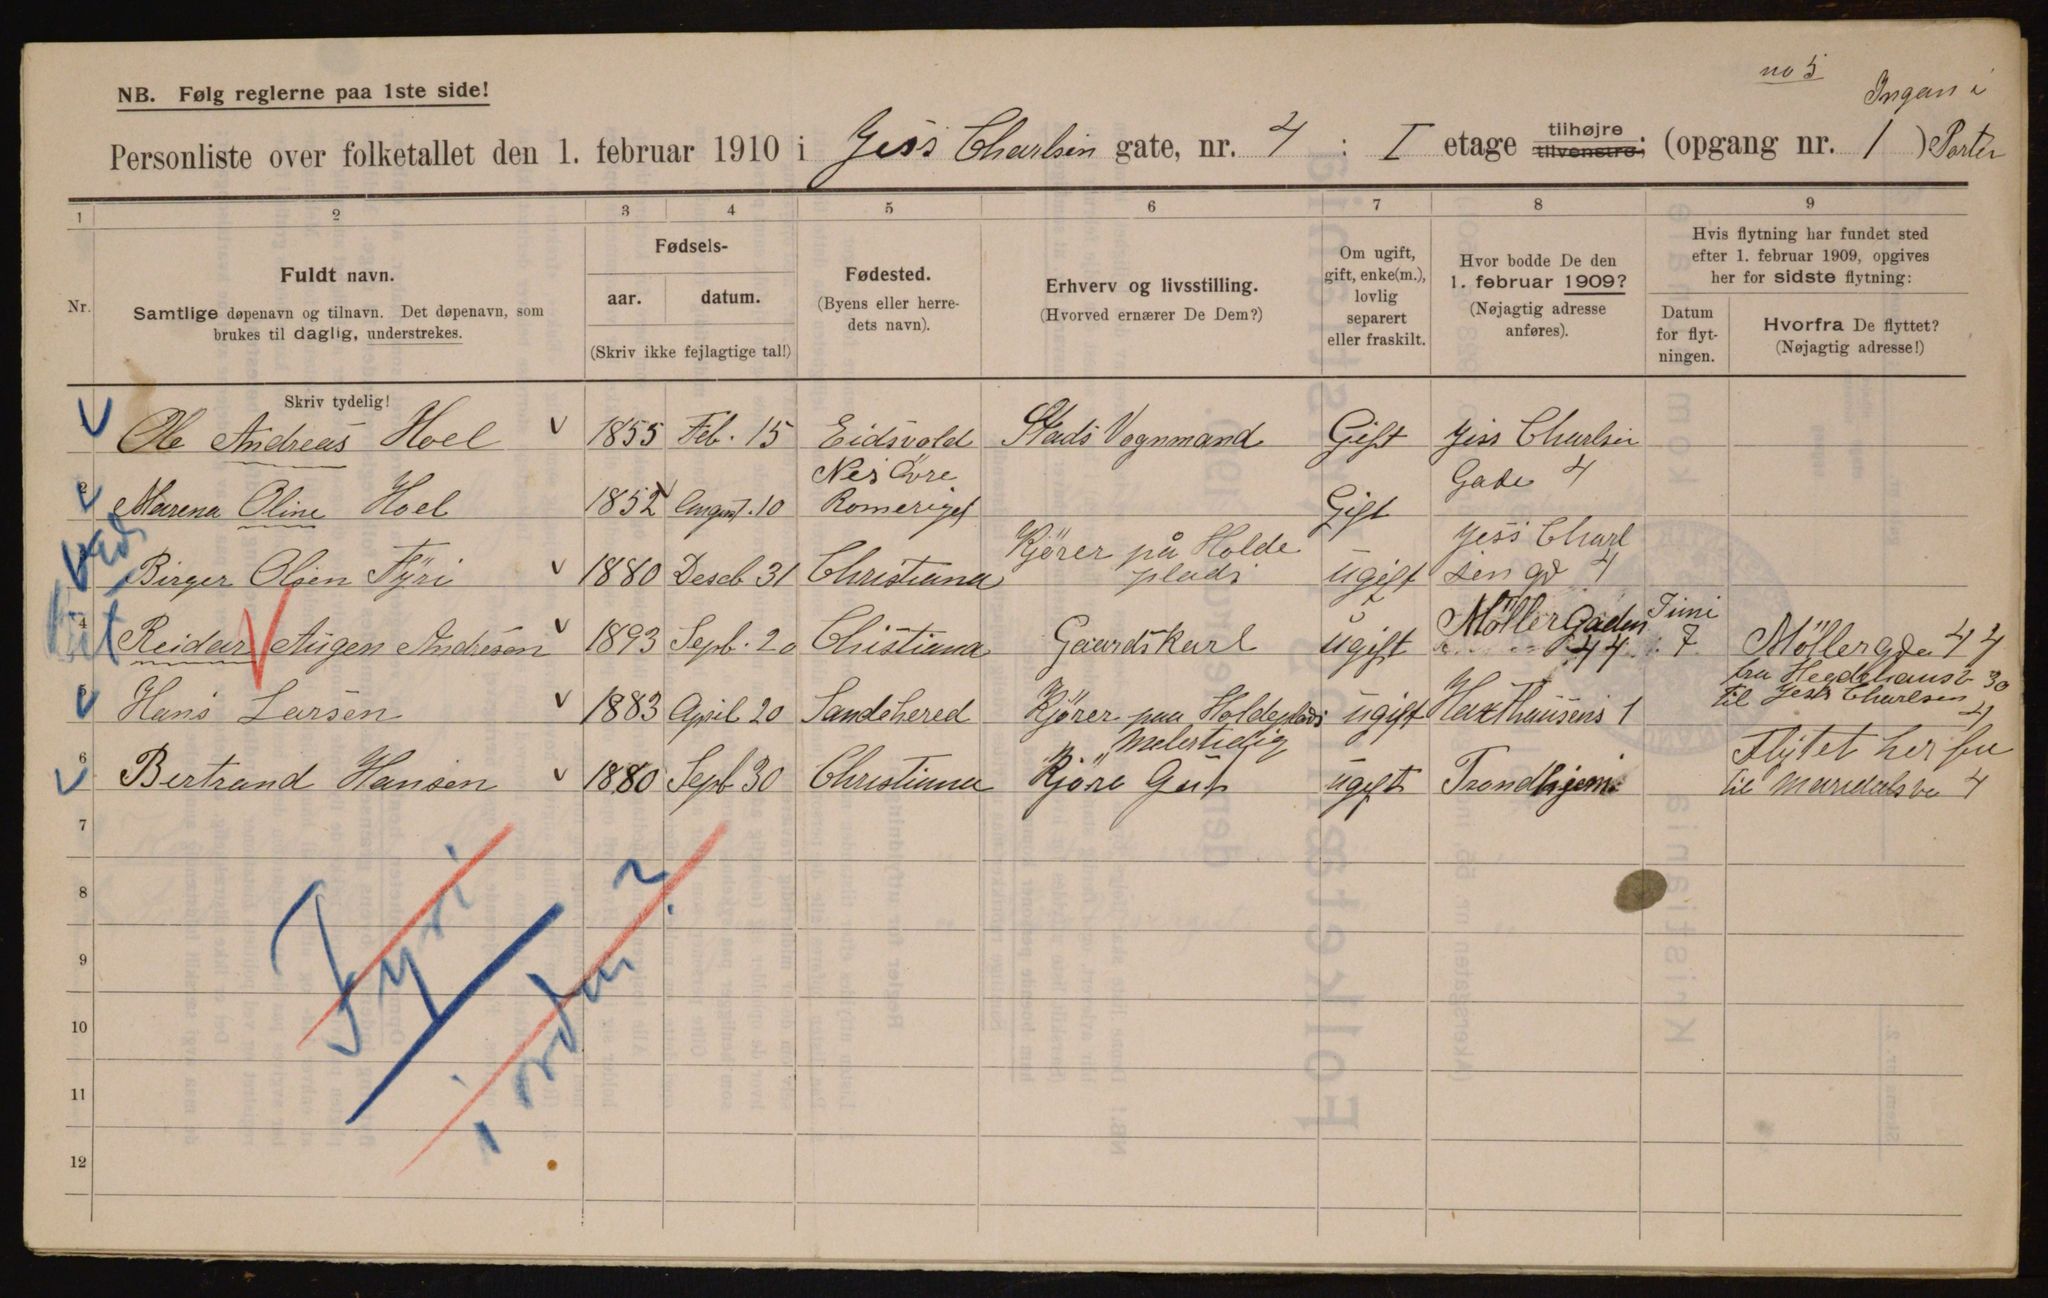 no 5
Ingan i
NB. Følg reglerne paa 1ste side!
Personliste over folketallet den 1. februar 1910 i Jess Charlsen gate, nr. 4 : I etage tilhøjre tilvenstre; (opgang nr. 1 ) Porten
1 2 3 4 5 6 7 8 9
Nr.
Fuldt navn.
Samtlige døpenavn og tilnavn. Det døpenavn, som
brukes til daglig, understrekes.
Fødsels-
aar. datum.
(Skriv ikke fejlagtige tal!)
Fødested.
(Byens eller herre-
dets navn).
Erhverv og livsstilling.
(Hvorved ernærer De Dem?)
Om ugift,
gift, enke(m.),
lovlig
separert
eller fraskilt.
Hvor bodde De den
1. februar 1909?
(Nøjagtig adresse
anføres).
Hvis flytning har fundet sted
efter 1. februar 1909, opgives
her for sidste flytning:
Datum
for flyt-
ningen.
Hvorfra De flyttet?
(Nøjagtig adresse!)
Skriv tydelig!
Ole Andreas Hoel 1855 Feb. 15 Eidsvold Stads Vognmand Gift Jess Charlsen
Gade 4
2 Marena Oline Hoel 1852 August. 10 Nes Övre
Romeriget Gift
3 Birger Olsen Fÿri 1880 Deseb 31 Christiana Kjörer på Holde
plads ugift Jess Charl
sen gd 4
4 Reidar Augen Andresen 1893 Sepb. 20 Chistiana Gaardskarl ugift Möller Gaden
44 Juni
7 Möllergda 44
5 Hans Larsen 1883 April 20 Sandehered Kjörer paa Holdeplads ugift Haxthausens 1 fra Hegdehausv 30
til Jess Charlsen
4
6 Bertrand Hansen 1880 Sepb 30 Christiana Melertidig
Kjöre Gut ugift Trondhjem Flÿtet her fra
til Maridalsve 4
7
8
9
10
11
12
Fyri
i orden?